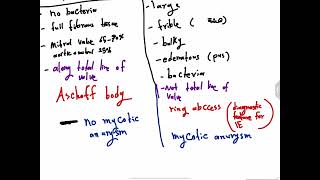 - no bacteria
- full fibrous tissue
- Mitral valve 65-70%
aortic number 25%
- along total line of
valve
Aschoff body
- no mycotic
anurysm
- large
- frible (
- bulky
- edematous (pus)
- bacteria
- Not total line of
valve
ring abccess (diagnostic
feature for
IE)
mycotic anurysm